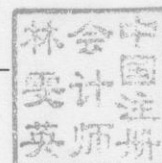 中国注册
会计师
林雯英